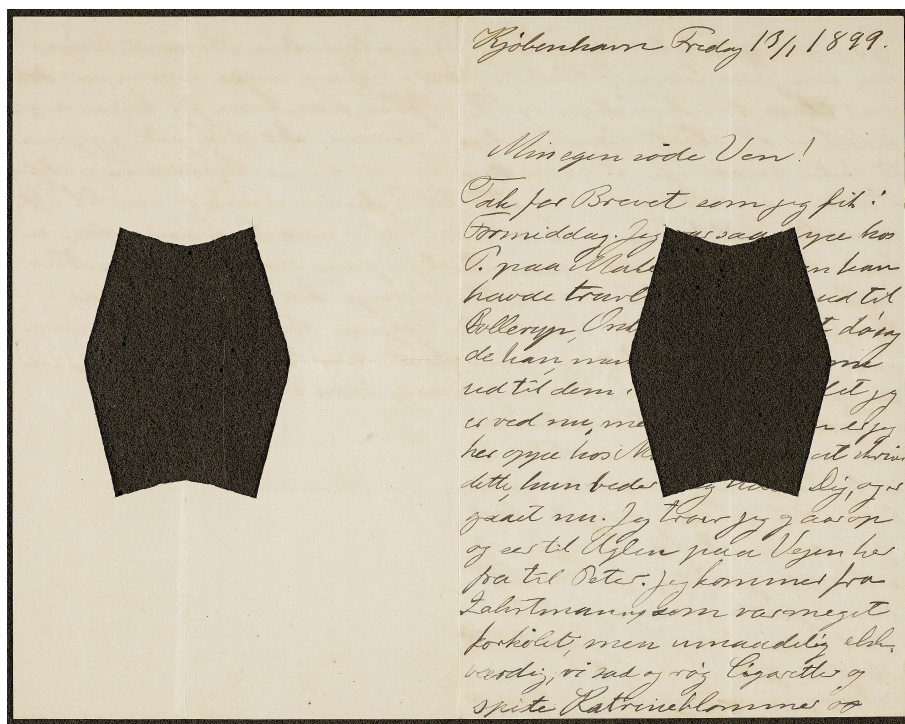 Kjöbenhavn Fredag 13/1 1899.
Min egen söde Ven!
Tak for Brevet som jeg fik i
Formiddag. Jeg var saa oppe hos
P. paa
havde travl ud til
de han, men
ud til dem det jeg
er ved nu, me er jeg
her oppe hos at skrive
dette, hun beder Dig, og er
gaaet nu. Jeg tror jeg gaar op
og ser til Uglen paa Vejen her
fra til Peter. Jeg kommer fra
Zahrtmann, som var meget
forkölet, men umaadelig elsk-
værdig, vi sad og røg Cigaretter og
spiste Katrineblommer og